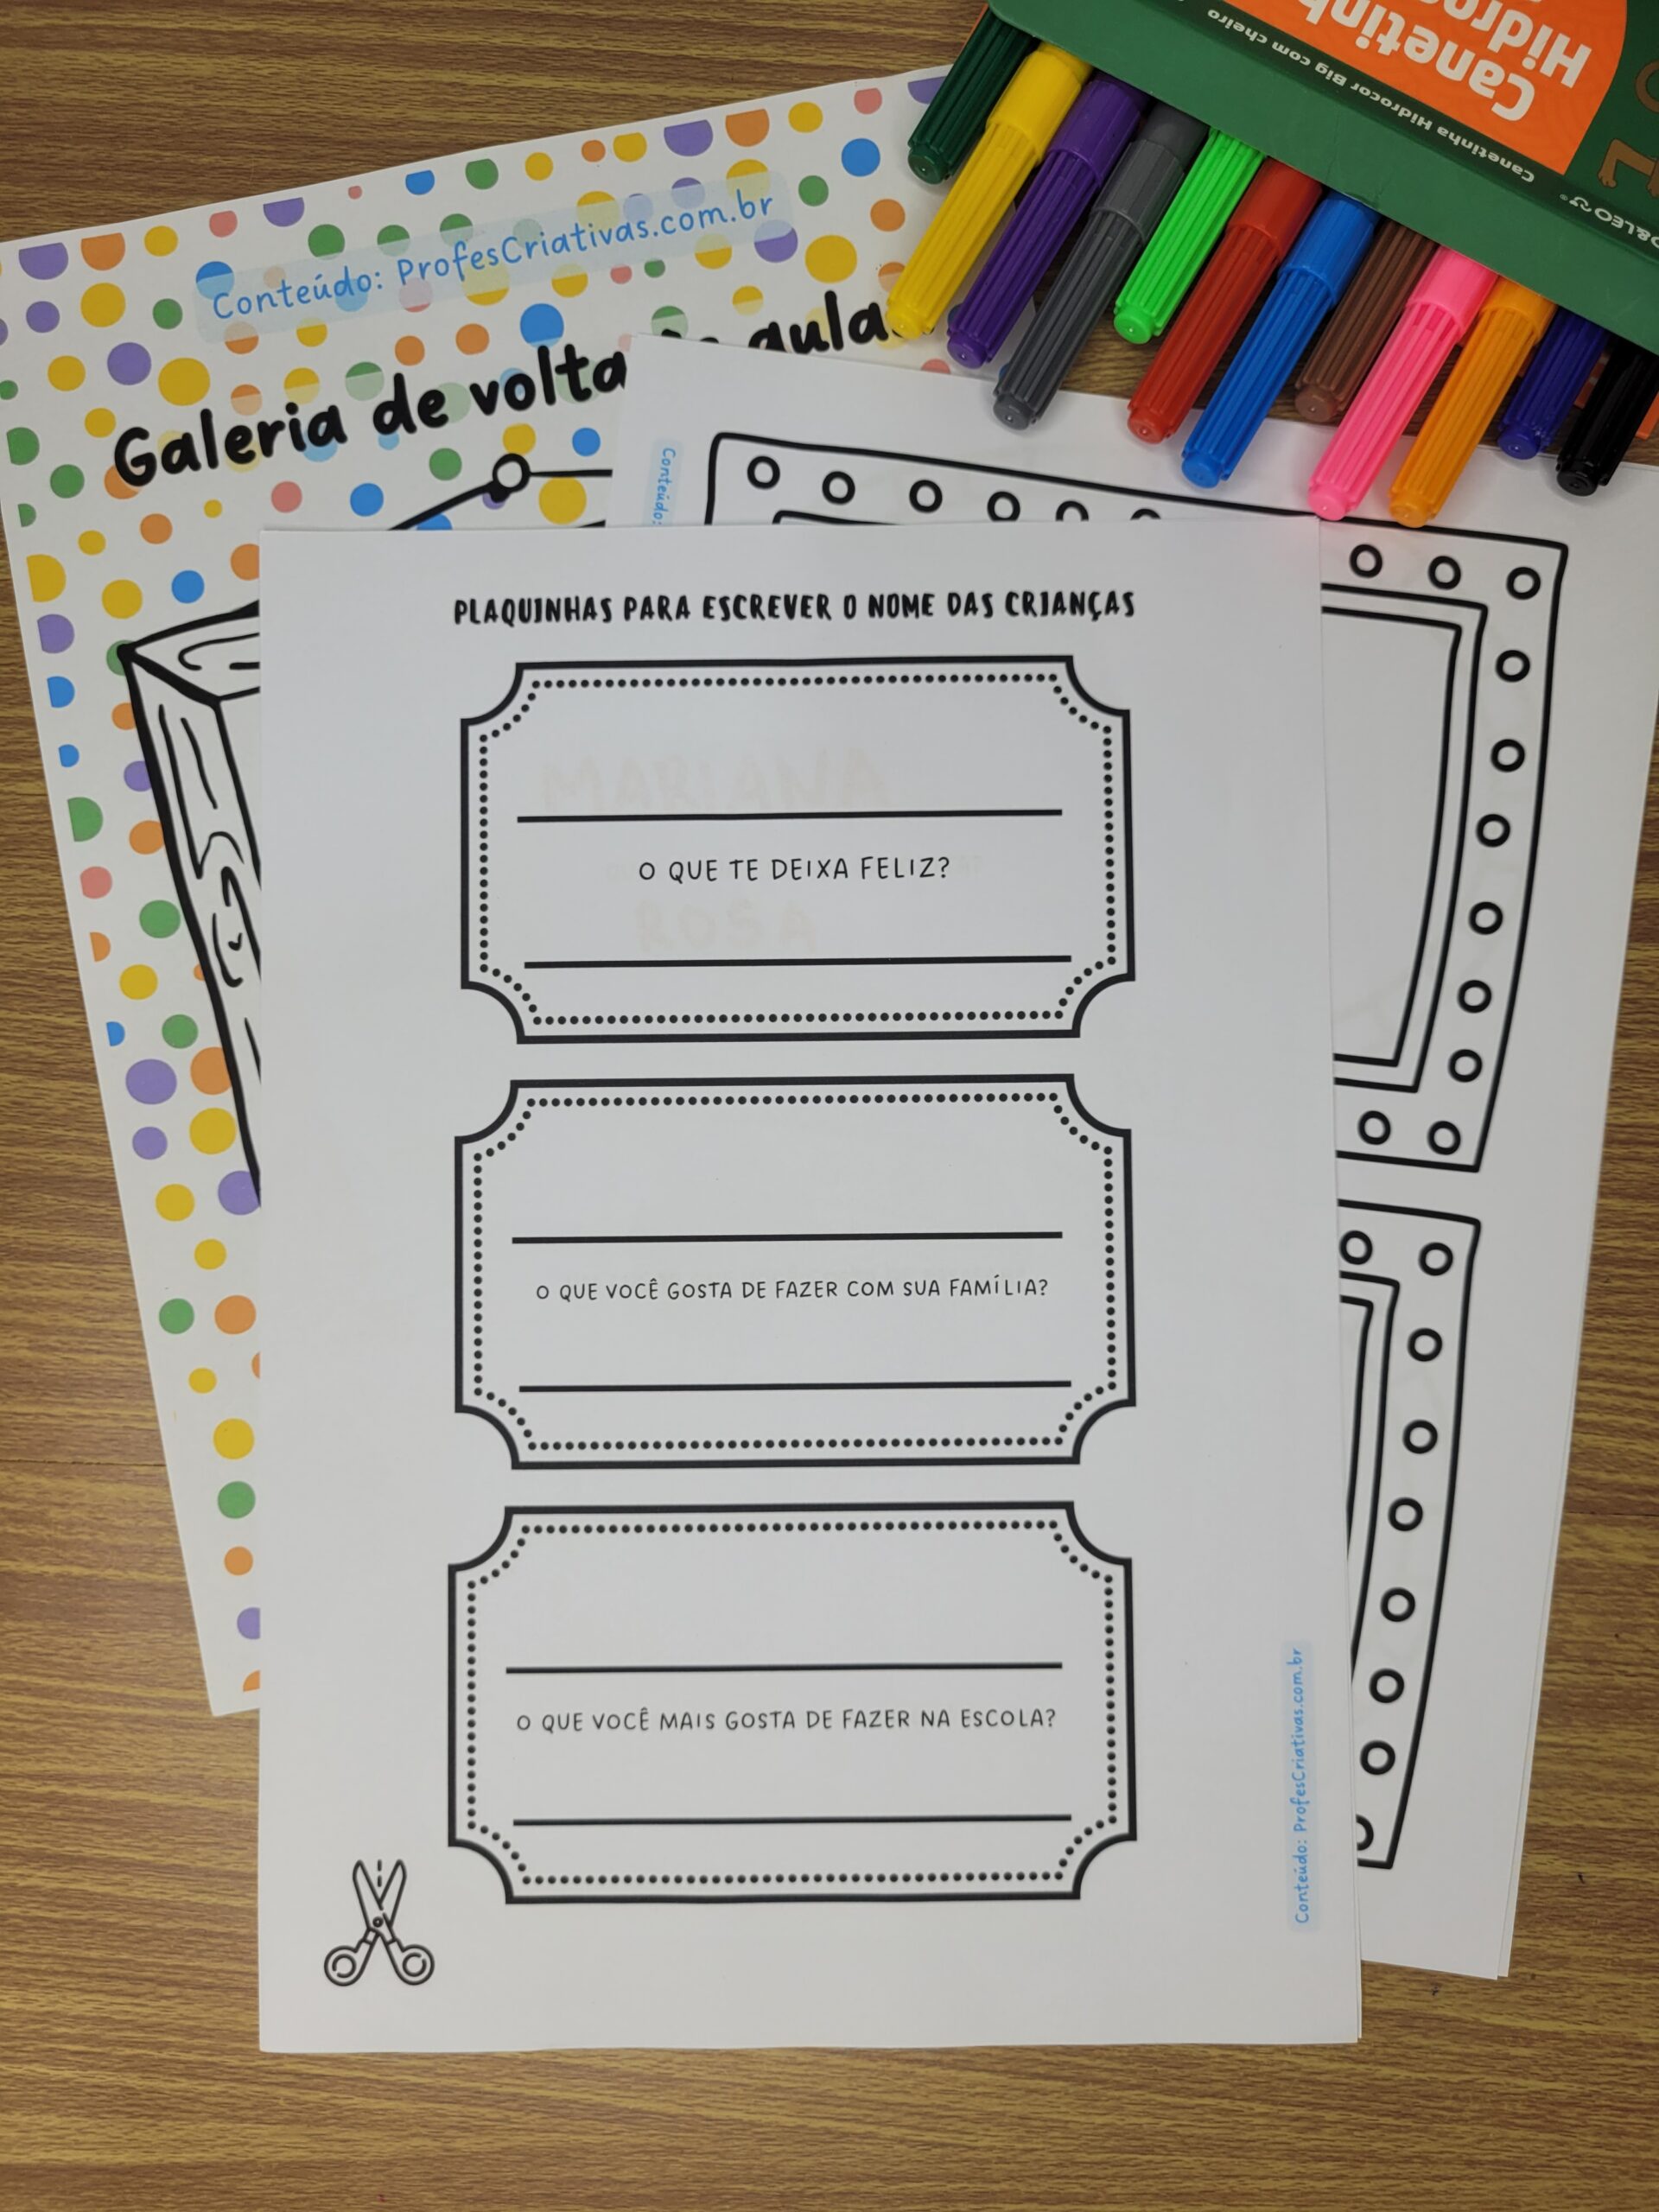 Canetinh
Hidroc
Canetinha Hidrocor Big com cheiro
&LEO
Conteúdo: ProfesCriativas.com.br
Galeria de volta aula
Conteúdo:
PLAQUINHAS PARA ESCREVER O NOME DAS CRIANÇAS
MARIANA
O QUE TE DEIXA FELIZ?
ROSA
O QUE VOCÊ GOSTA DE FAZER COM SUA FAMÍLIA?
O QUE VOCÊ MAIS GOSTA DE FAZER NA ESCOLA?
Conteúdo: ProfesCriativas.com.br